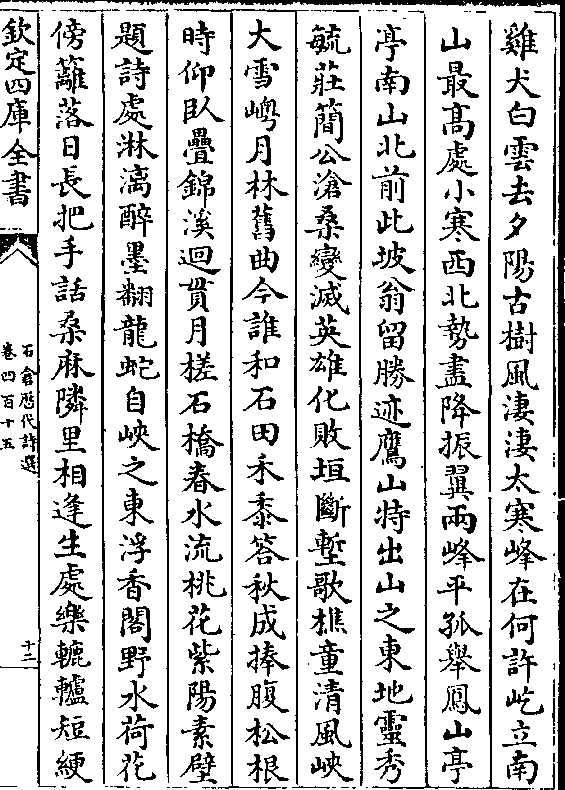 雞犬白雲去夕陽古樹風淒淒太寒峰在何許屹立南
山最高處小寒西北勢盡降振翼兩峰平孤舉鳳山亭
亭南山北前此坡翁留勝迹鷹山特出山之東地靈秀
毓莊簡公滄桑變滅英雄化敗垣斷塹歌樵童清風峽
大雪嶼月林舊曲今誰和石田禾黍答秋成捧腹松根
時仰臥疊錦溪迴貫月槎石橋春水流桃花紫陽素壁
題詩處淋漓醉墨翻龍蛇自峽之東浮香閣野水荷花
傍籬落日長把手話桑麻隣里相逢生處樂轆轤短綆
欽定四庫全書
石倉歷代詩選
卷四百十五
十二